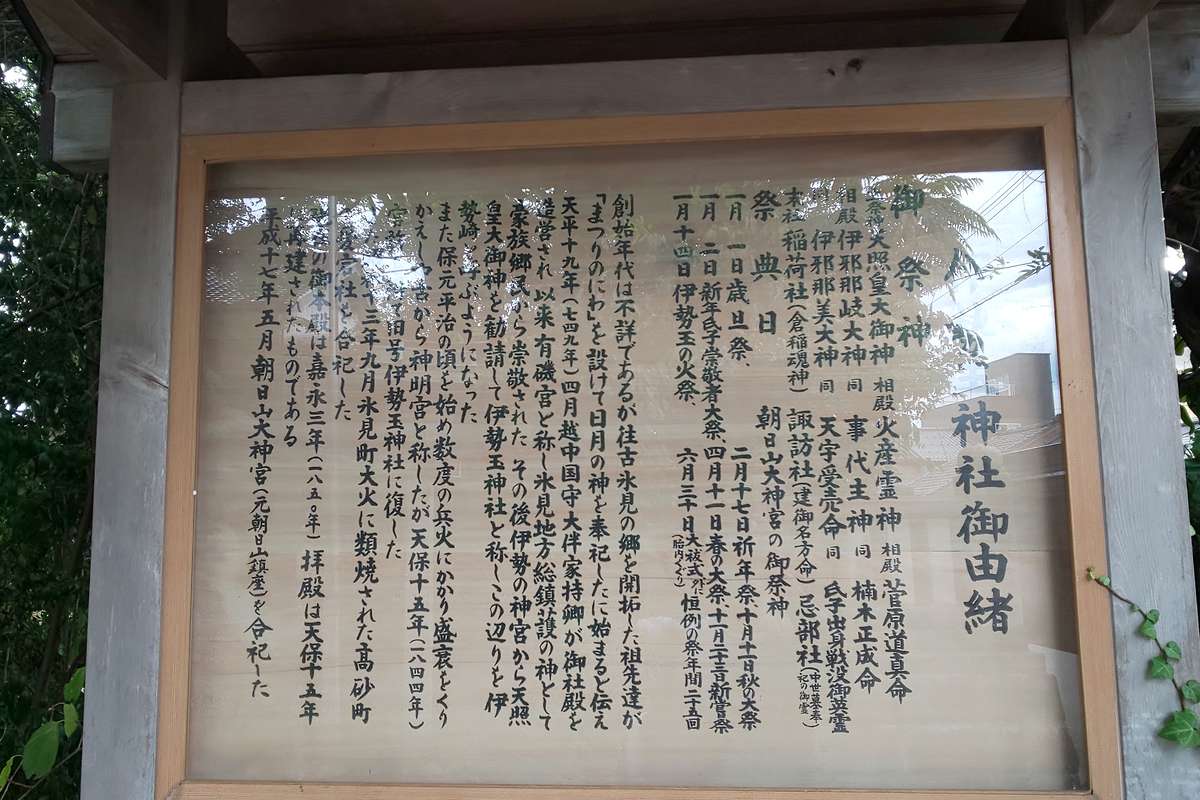 神社御由緒
御祭神
天照皇大御神 相殿 火産霊神 相殿 菅原道真命
相殿 伊邪那岐大神 同 事代主神 同 楠木正成命
伊邪那美大神 同 天宇受売命 同 氏子出身戦没御英霊
末社 稲荷社(倉稲魂神) 諏訪社(建御名方命) 忌部社
祭典日 朝日山大神宮の御祭神
一月 一日歳旦祭、 二月十七日祈年祭 十月十一日秋の大祭
一月 二日新年氏子崇敬者大祭、四月十一日春の大祭 十一月二十三日新嘗祭
一月十四日伊勢玉の火祭、 六月三十日大祓式 (胎内くぐり) 恒例の祭年間二十五回
創始年代は不詳であるが往古氷見の郷を開拓した祖先達が
「まつりのにわ」を設けて日月の神を奉祀したに始まると伝え
天平十九年(七四九年)四月越中国守大伴家持卿が御社殿を
造営され以来有磯宮と称し氷見地方総鎮護の神として
豪族郷民から崇敬された その後伊勢の神宮から天照
皇大御神を勧請して伊勢玉神社と称しこの辺りを伊
勢崎と呼ぶようになった
また保元平治の頃を始め数度の兵火にかかり盛衰をくり
かえし から神明宮と称したが天保十五年(一八四四年)
旧号伊勢玉神社に復した
三年九月氷見町大火に類焼された高砂町
社を合祀した
の御本殿は嘉永三年(一八五〇年) 拝殿は天保十五年
再建されたものである
平成十七年五月 朝日山大神宮(元朝日山鎮座)を合祀した